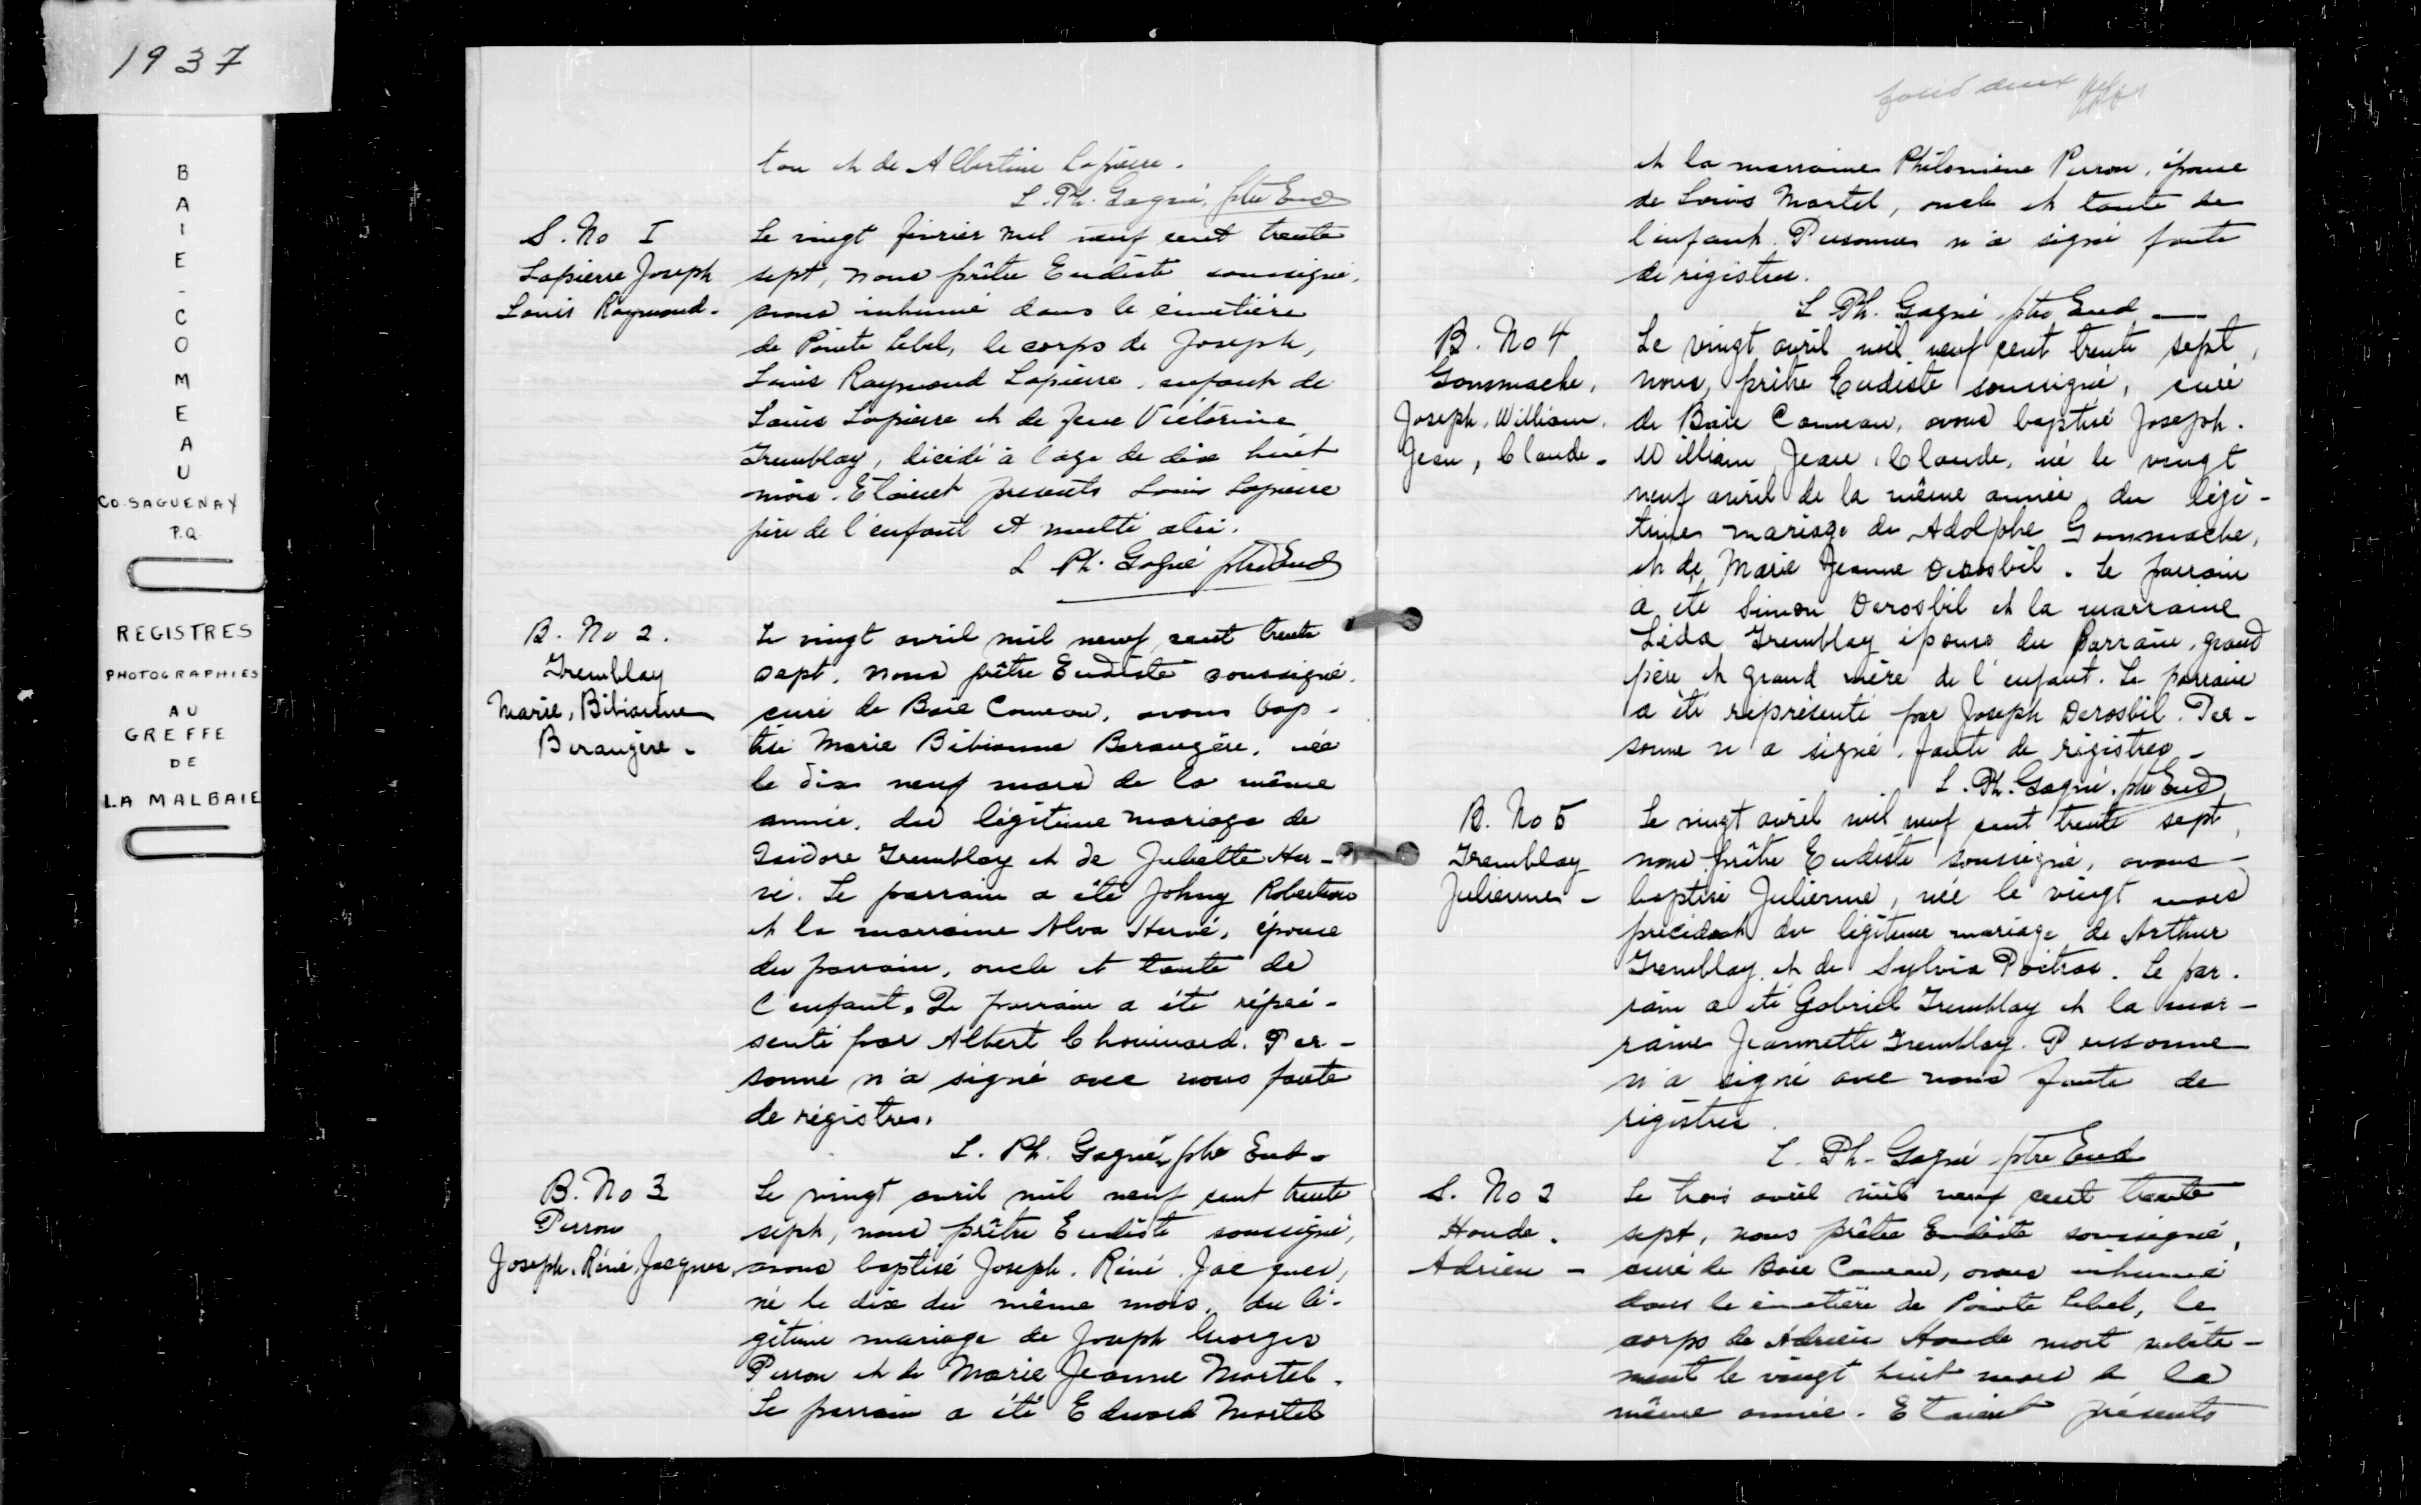 1937
BAIE-COMEAU
CO. SAGUENAY
P.Q.
REGISTRES
PHOTOGRAPHIES
AU
GREFFE
DE
LA MALBAIE
ton et de Albertine Lapierre.
L. Ph. Gagné, ptre Eud
S. No I
Lapierre Joseph
Louis Raymond.
Le vingt février mil neuf cent trente
sept, nous prêtre Eudiste soussigné,
avons inhumé dans le cimetière
de Pointe Lebel, le corps de Joseph,
Louis Raymond Lapierre, enfant de
Louis Lapierre et de feue Victorine
Tremblay, décédé à l'age de dix huit
mois. Etaient presents Louis Lapierre
père de l'enfant et multi alii.
L Ph. Gagné ptre Eud
B. No 2.
Tremblay
Marie, Bibianne
Berangère.
Le vingt avril mil neuf cent trente
sept, nous prêtre Eudiste soussigné,
curé de Baie Comeau, avons bap-
tisé Marie Bibianne Berangère, née
le dix neuf mars de la même
année, du légitime mariage de
Isidore Tremblay et de Juliette Her-
vé. Le parrain a été Johny Robertson
et la marraine Alva Hervé, épouse
du parrain, oncle et tante de
l'enfant. Le parrain a été répré-
senté par Albert Chouinard. Per-
sonne n'a signé avec nous faute
de régistres.
L. Ph. Gagné, ptre Eud.
B. No 3
Perron
Joseph, Réné, Jacques,
Le vingt avril mil neuf cent trente
sept, nous prêtre Eudiste soussigné,
avons baptisé Joseph. Réné. Jacques,
né le dix du même mois, du lé-
gitime mariage de Joseph Georges
Perron et de Marie Jeanne Martel.
Le parrain a été Edward Martel
et la marraine Philomène Perron, épouse
de Louis Martel, oncle et tante de
l'enfant. Personne n'a signé faute
de régistres.
L Ph. Gagné ptre Eud
B. No 4
Gommache,
Joseph, William,
Jean, Claude.
Le vingt avril mil neuf cent trente sept,
nous, prêtre Eudiste soussigné, curé
de Baie Comeau, avons baptisé Joseph.
William, Jean, Claude, né le vingt
neuf avril de la même année, du légi-
time mariage de Adolphe Gommache,
et de Marie Jeanne Derosbil. Le parrain
a été Simon Derosbil et la marraine
Léda Tremblay épouse du Parrain, grand
père et grand mère de l'enfant. Le parrain
a été représenté par Joseph Derosbil. Per-
sonne n'a signé, faute de régistres.
L. Ph. Gagné, ptre Eud
B. No 5
Tremblay
Julienne -
Le vingt avril mil neuf cent trente sept,
nous prêtre Eudiste soussigné, avons
baptisé Julienne, née le vingt mars
précédent du légitime mariage de Arthur
Tremblay et de Sylvia Poitras. Le par-
rain a été Gabriel Tremblay et la mar-
raine Jeannette Tremblay. Personne
n'a signé avec nous faute de
régistres.
L. Ph. Gagné ptre Eud
S. No 2
Houde.
Adrien -
Le trois avril mil neuf cent trente
sept, nous prêtre Eudiste soussigné,
curé de Baie Comeau, avons inhumé
dans le cimetière de Pointe Lebel, le
corps de Adrien Houde mort subite-
ment le vingt huit mars de la
même année. Etaient présents